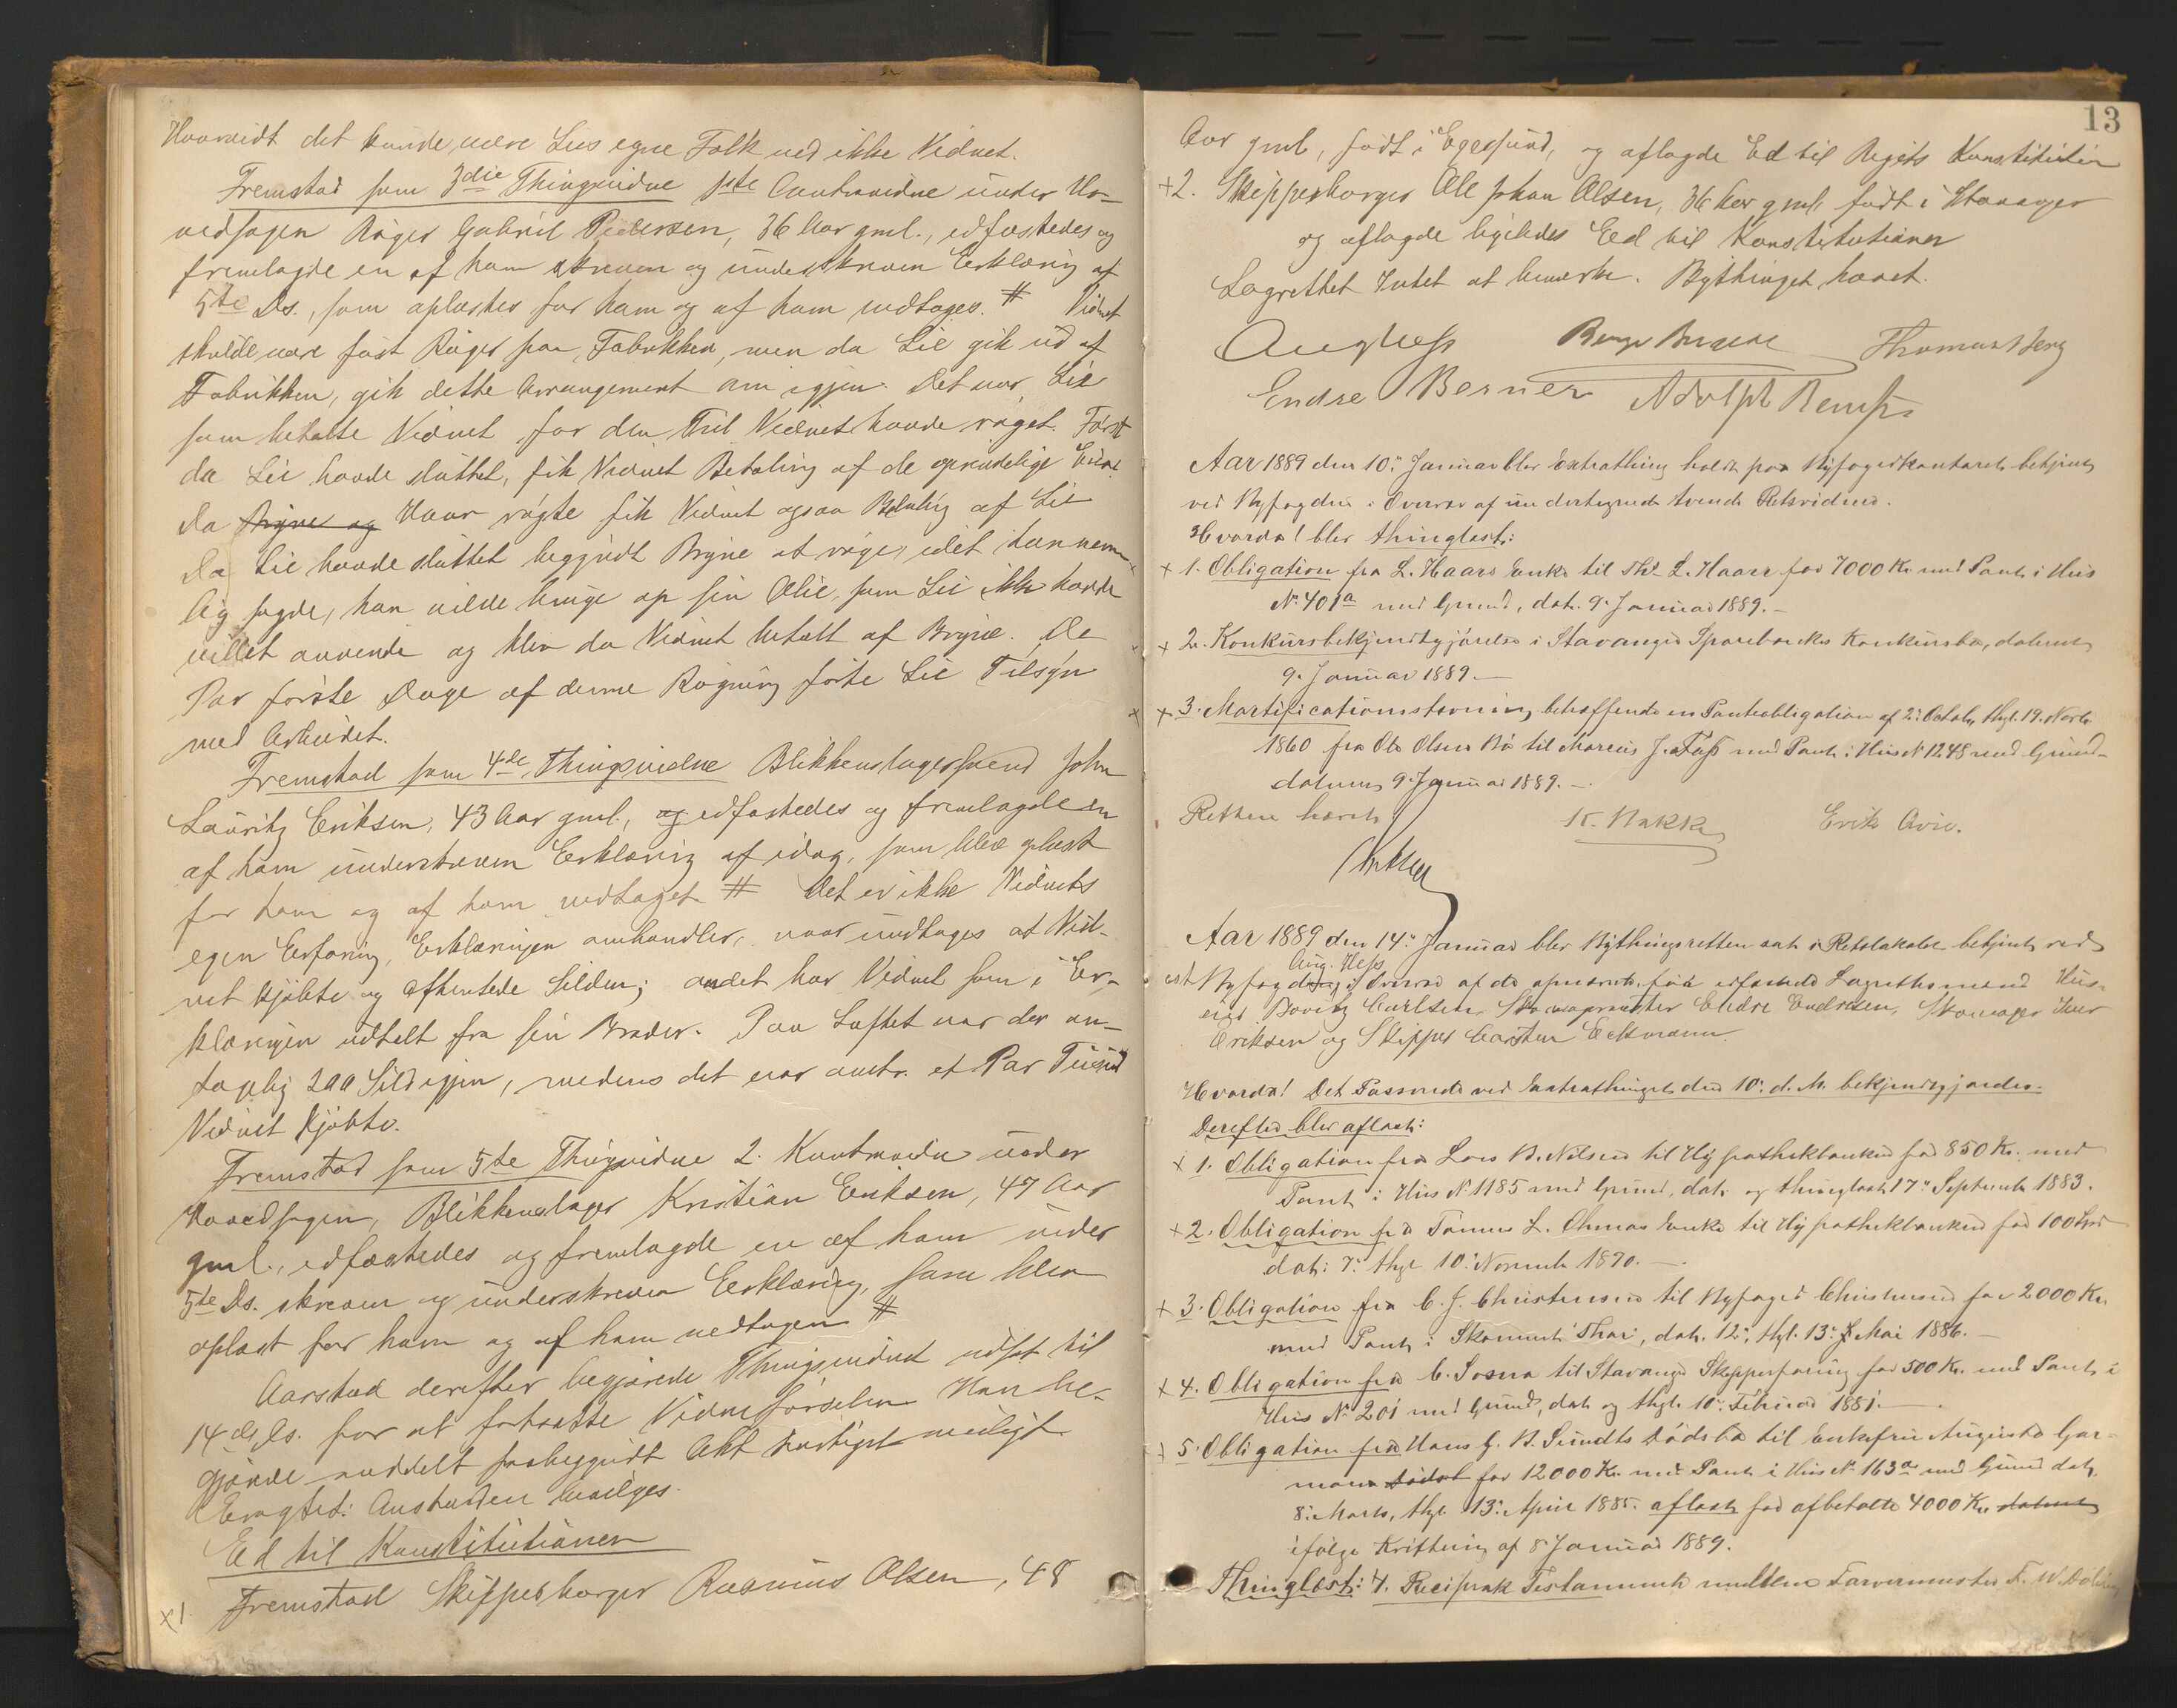 Hvorvidt det kunde være Lies egne Folk ved ikke Vidnet.
Fremstod som 3die Thingvidne 1ste Contravidne under Ho-
vedsagen Røger Gabriel Pedersen, 36 Aar gml., edfæstedes og
fremlagde en af ham skreven og underskreven Erklæring af
5te Ds., som oplæstes for ham og af ham vedtoges. # Vidnet
skulde være fast Røger paa Fabrikken, men da Lie gik ud af
Fabrikken, gik dette Arrangement om igjen. Det var Lie
som betalte Vidnet for den Tid Vidnet havde røget. Først
da Lie havde sluttet, fik Vidnet Betaling af de oprindelige
da Bryne og Haar røgte fik Vidnet ogsaa Betaling af Lie
Da Lie havde sluttet begyndt Bryne at røge, idet han
lig sagde, han vilde bruge op sin Olie, som Lie ikke havde
villet anvende og blev da Vidnet betalt af Bryne. De
Par første Dage af denne Røgning førte Lie Tilsyn
med Arbeidet.
Fremstod som 4de Thingvidne Blikkenslagersvend John
Lauritz Eriksen, 43 Aar gml., og edfæstedes og fremlagde en
af ham underskreven Erklæring af idag, som blev oplæst
for ham og af ham vedtaget # Det er ikke Vidnets
egen Erfaring, Erklæringen omhandler, naar undtages at Vid-
net kjøbte og afhentede Silden; andet har Vidnet som i Er-
klæringen udtalt fra sin Broder. Paa Loftet var der an-
tagelig 200 Sild igjen, medens det var omtr. et Par Tusind
Vidnet kjøbte.
Fremstod som 5te Thingvidne 2. Kontravidne under
Hovedsagen, Blikkenslager Kristian Eriksen, 47 Aar
gml., edfæstedes og fremlagde en af ham under
5te Ds. skreven og underskreven Erklæring, som blev
oplæst for ham og af ham vedtagen #
Aarstad derefter begjærede Thingsvidnet udsat til
14de Ds. for at fortsætte Vidneførselen Han be-
gjærede meddelt forbegyndt Akt hurtigst muligt
Eragtet: Anstanden bevilges.
Ed til Konstitutionen
x1. Fremstod Skipperborger Rasmus Olsen, 48
13
Aar gml, født i Egersund, og aflagde Ed til Rigets Konstitution
+2. Skipperborger Ole Johan Olsen, 36 Aar gml, født i Stavanger
og aflagde ligeledes Eed til Konstitutionen
Lagrettet Intet at bemærke. Bythinget hævet.
Aug Hess Thomas Berg
Endre Berner Adolph
Aar 1889 den 10: Januar blev Extrathing holdt paa Byfogedkontoret, betjent
ved Byfogden i Overvær af undertegnede tvende Retsvidner.
Hvorda! blev thinglæst:
+ 1. Obligation fra L. Haars Enke til L. Haar for 7000 Kr. med Pant i Hus
No. 401a med Grund, dat. 9. Januar 1889.-
+ 2. Konkursbekjendtgjørelse i Stavanger Sparebanks Konkursbo, dateret
9. Januar 1889.-
+ 3. Mortificationsstevning betræffende en Panteobligation af 2: October thgl. 19. Novb.
1860 fra Ole Olsen Bø til Marcus J. med Pant i Hus No 1248 med Grund-
dateret 9. Januar 1889.-
Retten hævet
K. Erik
Aar 1889 den 14: Januar blev Bythingsretten sat i Retslokalet betjent ved
Aug. Hess
Byfogden i Overvær af de opnævnte før edfæstede Lagrettesmænd Hus-
eier Carlsen, Skomagermester Endre Endresen, Skomager Iver
Eriksen og Skipper Carsten
Hvorda! Det Passerede ved Extrathinget den 10: d. M. bekjendtgjordes.
Derefter blev aflæst:
+ 1. Obligation fra Lars B. Nilsen til Hypothekbanken for 850 Kr. med
Pant i Hus No 1185 med Grund, dat. og thinglæst 17: Septemb. 1883.
+ 2. Obligation fra Tønnes L. Enke til Hypothekbanken for 100
dat: 7: thgl 10: Novemb 1870.-
+ 3. Obligation fra C. J. Christensen til Byfoged Christensen for 2000 Kr.
med Pant i Skonnert Thor, dat. 12:, thgl. 13: Mai 1886.-
+ 4. Obligation fra C. til Stavanger Skipperforening for 500 Kr. med Pant i
Hus No 201 med Grund, dat. og thgl. 10: Februar 1881.-
+ 5. Obligation fra Hans G. B. Sundts Dødsbo til Enkefru Augusta Gar-
mann for 12000 Kr. med Pant i Hus No 163a med Grund dat.
8: Marts, thgl. 13: April 1885. aflæst for afbetalte 4000 Kr. dateret
ifølge Kvittering af 8 Januar 1889.
Thinglæst: 1. Reciprok Testament mellem Farvermester F. W.